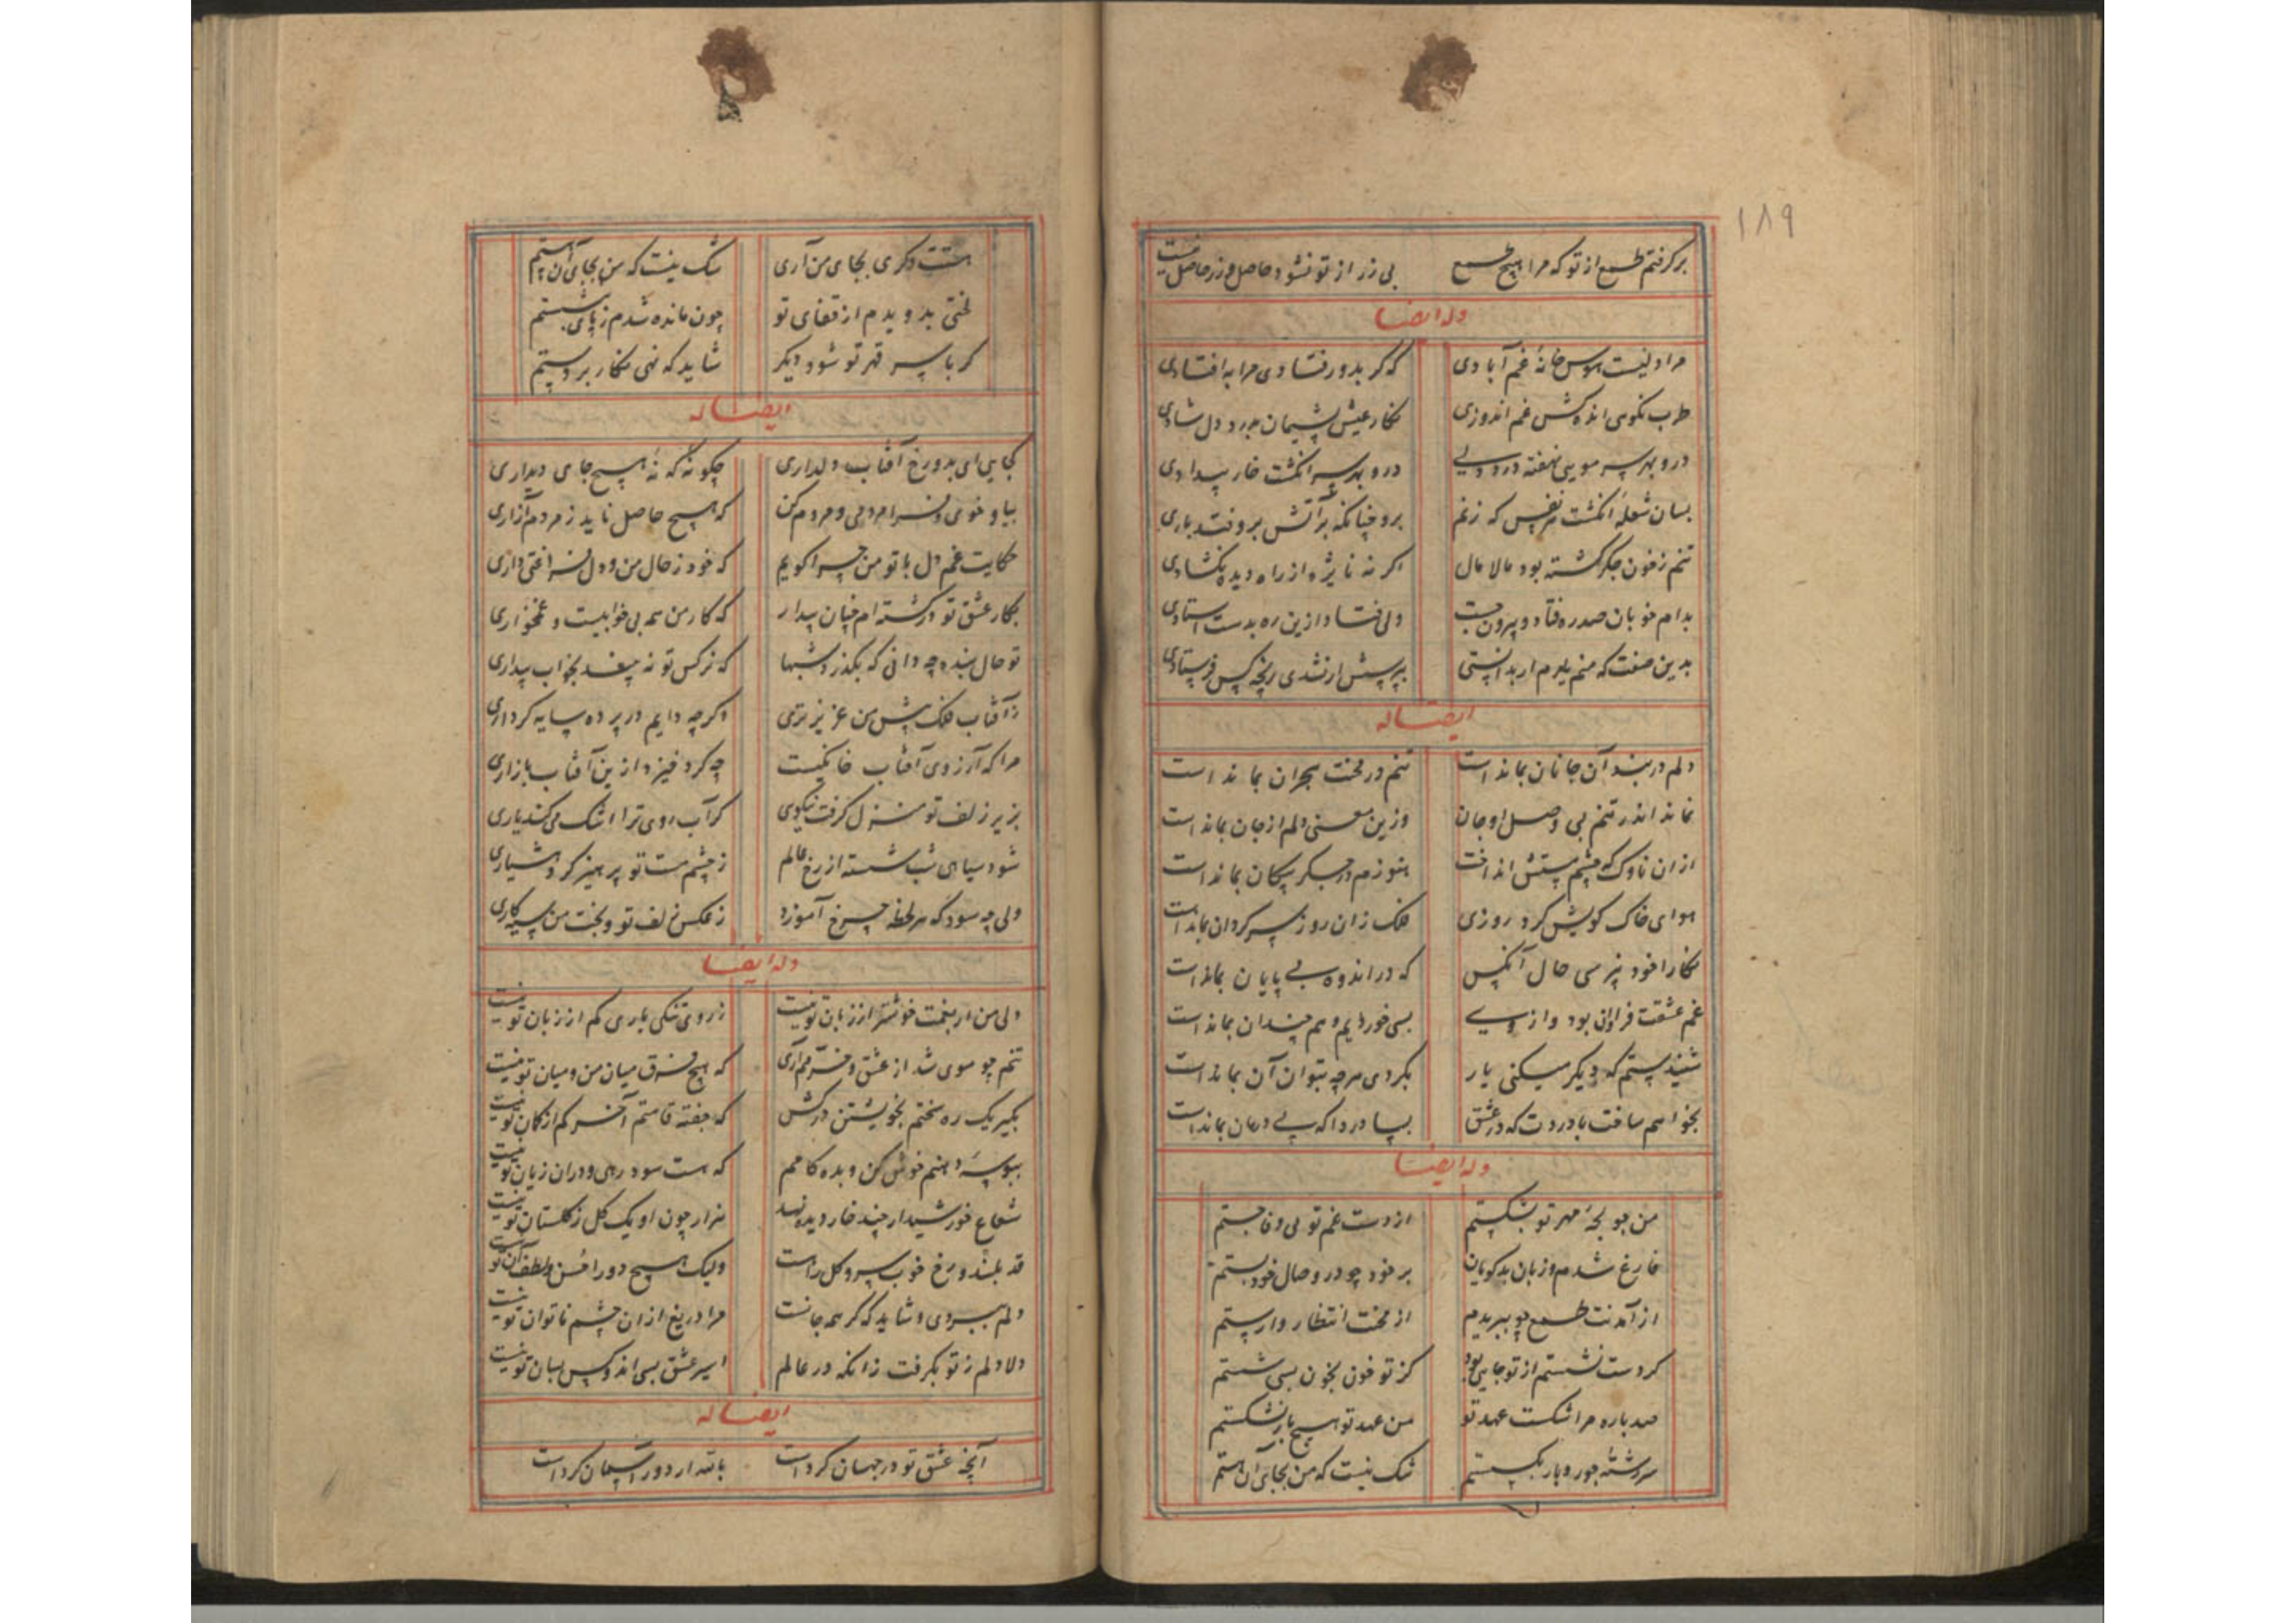 ۱۸۹
برکرفتم طمع از تو که مرا هیچ طمع بی زر از تو نشود حاصل و زر حاصل نیست
وله ایضا
مرا دلیست هوس خانهٔ غم آبادی که کر بدور فتادی مرا به افتادی
طرب نکوهی انده کش غم اندوزی نکار عیش پشیمان مرد دل شادی
درو بهر سر مویی نهفته درد دلی درو بهر سر انکشت خار بیدادی
بسان شعلهٔ انکشت هر نفس که زغم برو چنانکه بر آتش بروفتد بادی
تنم زخون جکر کشته بود مالامال اکر نه نایژه از راه دیده نکشادی
بدام خوبان صدره فتاد و بیرون جست ولی فتاد ازین ره بدست استادی
بدین صفت که منم یارم ار بدانستی بپرسش ار نشدی رنجه کس فرستادی
ایضا له
دلم در بند آن جانان بماند است تنم در محنت هجران بماند است
نماند اندر تنم بی وصل او جان وزین معنی دلم از جان بماند است
ازان ناوک که چشم مستش انداخت هنوزم در جکر پیکان بماند است
هوای خاک کویش کرد روزی فلک زان روز سرکردان بماند است
نکارا خود نپرسی حال آنکس که در اندوه بی پایان بماند است
غم عشقت فراوان بود و از وی بسی خوردیم و هم چندان بماند است
شنیدستم که دیکر میکنی یار بکردی هرچه بتوان آن بماند است
بخواهم ساخت با دردت که در عشق بسا دردا که بی درمان بماند است
وله ایضا
من جو بجهٔ مهر تو بشکستم از دست غم تو بی وفا جستم
فارغ شدم و زبان بدکویان بر خود چو در وصال خود بستم
از آمدنت طمع چو ببریدم از محنت انتظار وارستم
کر دست نشستم از تو جایی بود کز تو خون بخون بسی شستم
صد باره مرا شکست عهد تو من عهد تو هیچ بار نشکستم
سررشتهٔ جور و بار بکسستم شک نیست که من بجای آن هستم
هستت دکری بجای من آری شک نیست که من بجای آن هستم
لختی بدویدم از قفای تو چون مانده شدم ز پای بنشستم
کر با سر قهر تو شود دیکر شاید که نهی نکار بر دستم
ایضا له
کجایی ای بدو رخ آفتاب دلداری چکونهٔ که نهٔ هیچ جای دیداری
بیا و خوی فرا مردمی و مردم کن که هیچ حاصل ناید ز مردم آزاری
حکایت غم دل با تو من چرا کویم که خود ز حال من و دل فراغتی داری
بکار عشق تو در کشته ام چنان بیدار که کار من همه بی خوابیست و غمخواری
تو حال بنده چه دانی که بکذرد شبها که نرکس تو نه بیند بخواب بیداری
ز آفتاب فلک پیش من عزیزتری وکرچه دایم در پرده سایه کرداری
مرا که آرزوی آفتاب خانکیست چه کرد خیزد ازین آفتاب بازاری
بزیر زلف تو منزل کرفت نیکویی کر آب روی ترا اشک می کند یاری
شود سیاهی شب شسته از رخ عالم ز چشم مست تو پرهیز کرد هشیاری
ولی چه سود که هر لحظه چرخ آموزد ز عکس زلف تو و بخت من سیه کاری
وله ایضا
دلی من ار بغمت خوشتر از زبان تو نیست ز روی تنکی باری کم از زبان تو نیست
تنم چو موی شد از عشق و خرمم آری که هیچ فرق میان من و میان تو نیست
بکیر یک ره سختم بخویشتن درکش که جفته قامتم آخر کم از کمان تو نیست
ببوسهٔ دهنم خوش کن و بده کامم که هست سود رهی و دران زیان تو نیست
شعاع خورشید ار چند خار دیده نهد هزار چون او یک کل ز کلستان تو نیست
قد بلند و رخ خوب سرو کل راست ولیک هیچ دورا حسن و لطف آن تو نیست
دلم ببردی و شاید که کر همه جانست مرا دریغ ازان چشم ناتوان تو نیست
دلا دلم ز تو بکرفت زانکه در عالم اسیر عشق بسی اند و کس بسان تو نیست
ایضا له
آنچه عشق تو در جهان کرد است بالله ار دور آسمان کرد است